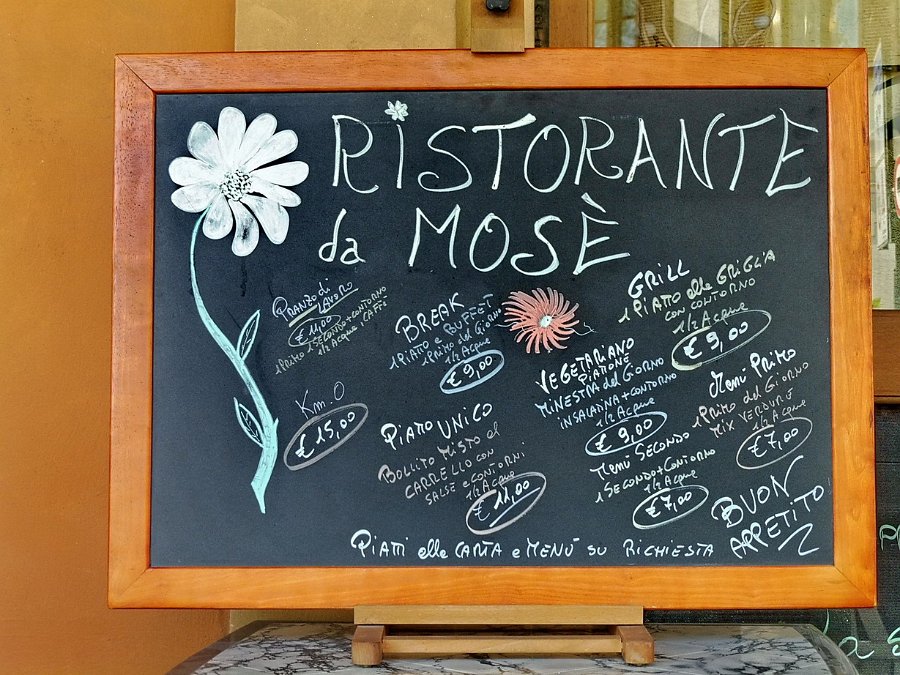 RISTORANTE
da MOSÈ
PRANZO di
LAVORO
€ 11,00
1 PRIMO 1 SECONDO + CONTORNO
1/2 ACQUA CAFFÈ
Km. 0
€ 15,00
BREAK
1 PIATTO e BUFFET
1 PRIMO del GIORNO
1/2 ACQUA
€ 9,00
PIATTO UNICO
BOLLITO MISTO al
CARRELLO CON
SALSE e CONTORNI
1/2 ACQUA
€ 11,00
VEGETARIANO
PIATTONE
MINESTRA del GIORNO
INSALATINA + CONTORNO
1/2 ACQUA
€ 9,00
MENÙ SECONDO
1 SECONDO + CONTORNO
1/2 ACQUA
€ 7,00
GRILL
1 PIATTO alla GRIGLIA
CON CONTORNO
1/2 ACQUA
€ 9,00
MENÙ PRIMO
1 PRIMO del GIORNO
MIX VERDURE
1/2 ACQUA
€ 7,00
BUON
APPETITO
PIATTI alla CARTA e MENÙ SU RICHIESTA